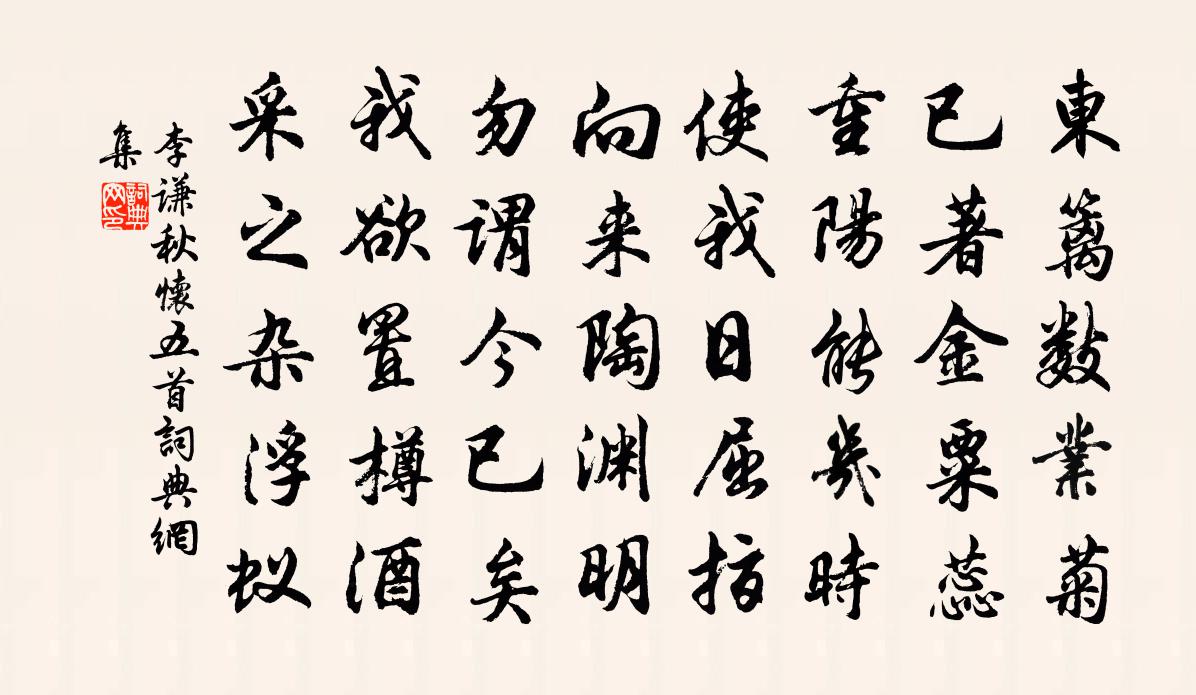 東籬數業菊
已著金粟蕊
重陽能幾時
使我日屈指
向来陶渊明
勿謂今已矣
我欲置樽酒
采之杂浮蚁
李谦秋懷五首詞典網
集
詞典
网印